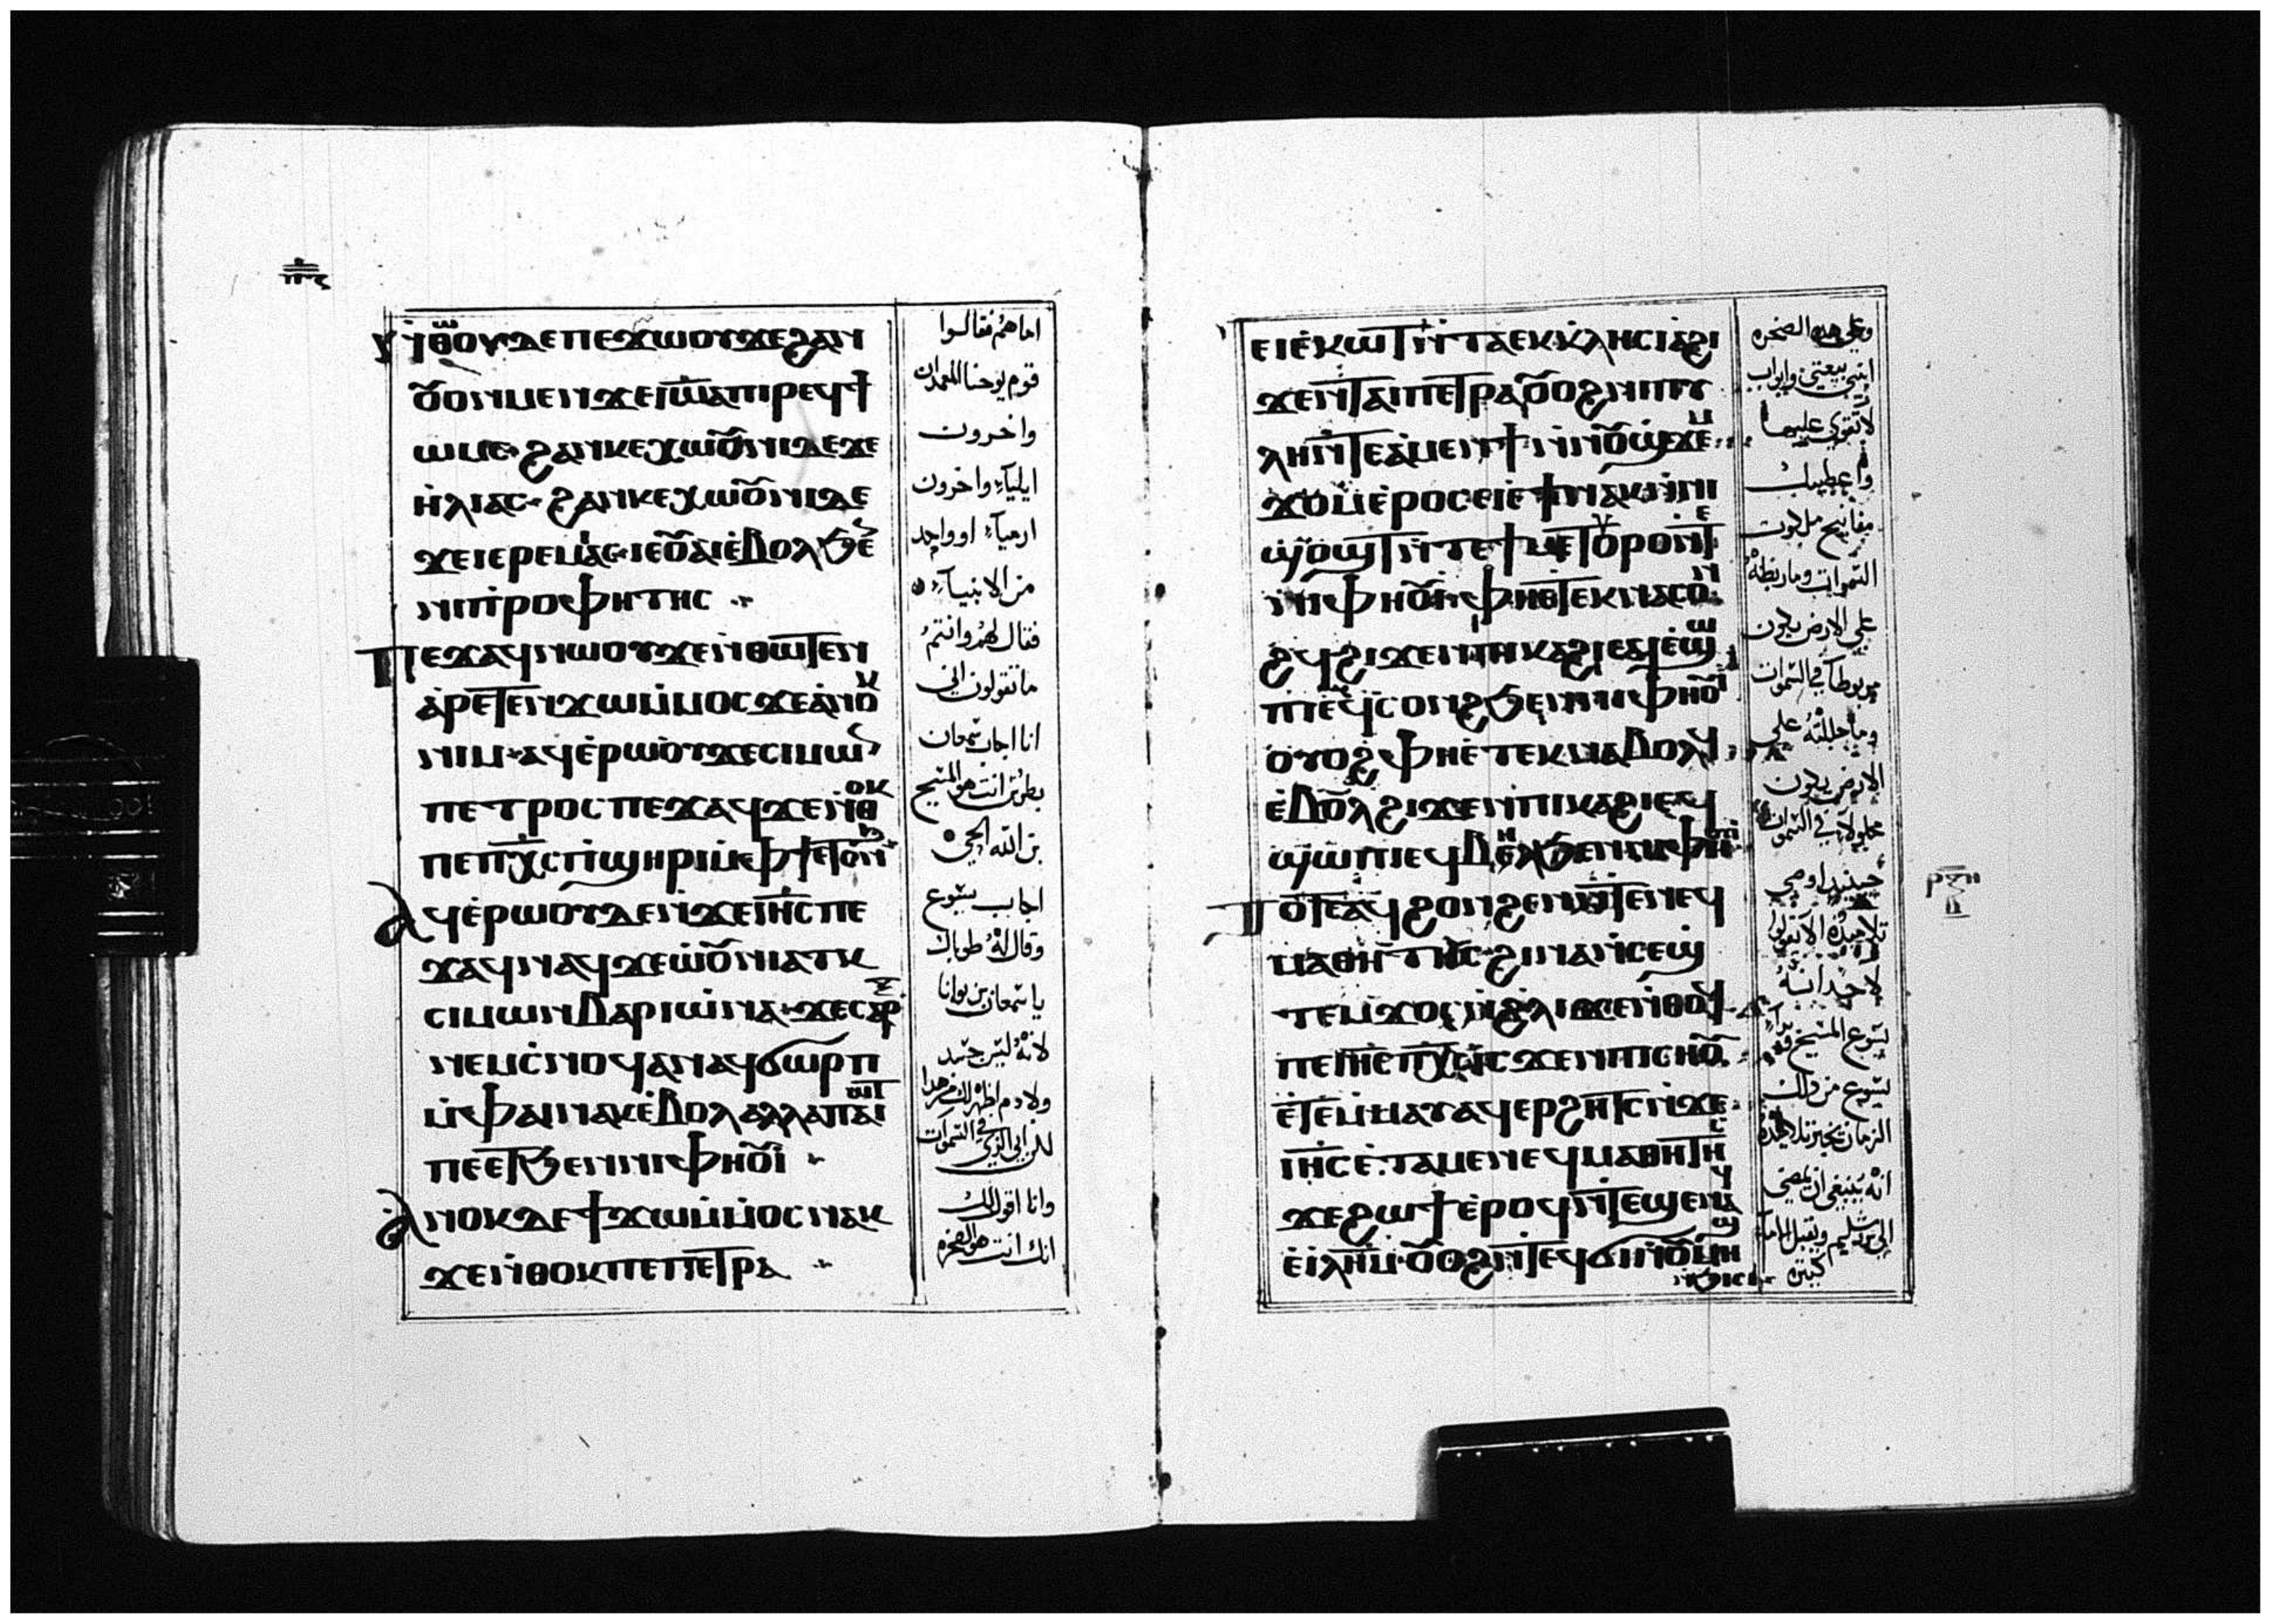 ⲛ̀ⲑⲱⲟⲩⲇⲉⲡⲉϫⲱⲟⲩϫⲉϩⲁⲛ
ⲟⲩⲟⲛⲙⲉⲛϫⲉⲓⲱⲁⲡⲓⲣⲉϥϯ
ⲱⲙⲥ·ϩⲁⲛⲕⲉⲭⲱⲟⲩⲛⲓⲇⲉϫⲉ
ⲏ̀ⲗⲓⲁⲥ·ϩⲁⲛⲕⲉⲭⲱⲟⲩⲛⲓⲇⲉ
ϫⲉⲓⲉⲣⲉⲙⲓⲁⲥ·ⲓⲉⲟⲩⲁⲓⲉ̀ⲃⲟⲗϧⲉ
ⲛⲛⲓⲡⲣⲟⲫⲏⲧⲏⲥ
ⲡⲉϫⲁϥⲛⲱⲟⲩϫⲉⲛ̀ⲑⲱⲧⲉⲛ
ⲁ̀ⲣⲉⲧⲉⲛϫⲱⲙ̀ⲙⲟⲥϫⲉⲁ̀ⲛⲟⲕ
ⲛⲓⲙ·ⲁϥⲉ̀ⲣⲱⲟⲩϫⲉⲥⲓⲙⲱⲛ
ⲡⲉⲧⲣⲟⲥⲡⲉϫⲁϥϫⲉⲛ̀ⲑⲟⲕ
ⲡⲉⲡⲭ̅ⲥ̅ⲡ̀ϣⲏⲣⲓⲙ̀ⲫϯⲉⲧⲟⲛϧ
ⲁϥⲉ̀ⲣⲱⲟⲩⲇⲉⲛ̀ϫⲉⲓⲏ̅ⲥ̅ⲡⲉ
ϫⲁϥⲛⲁϥϫⲉⲱ̀ⲟⲩⲛⲓⲁⲧⲕ
ⲥⲓⲙⲱⲛⲃⲁⲣⲓⲱ̀ⲛⲁ·ϫⲉⲥⲁⲣⲝ
ⲛⲉⲙⲥ̀ⲛⲟϥⲁⲛⲁϥϭⲱⲣⲡ
ⲙ̀ⲫⲁⲓⲛⲁⲕⲉ̀ⲃⲟⲗⲁⲗⲗⲁⲡⲁⲓⲱⲧ
ⲡⲉⲉⲧϧⲉⲛⲛⲓⲫⲏⲟⲩⲓ̀
ⲁⲛⲟⲕⲇⲉϯϫⲱⲙ̀ⲙⲟⲥⲛⲁⲕ
ϫⲉⲛ̀ⲑⲟⲕⲡⲉⲡⲉⲧⲣⲁ
اما هم فقالوا
قوم يوحنا المعمدان
واخرون
ايلياء واخرون
ارمياء او واحد
من الانبياء
فقال لهم وانتم
ما تقولون اني
انا اجاب سمعان
بطرس انت هو المسيح
بن الله الحي
اجاب يسوع
وقال له طوباك
يا سمعان بن يونا
لانه ليس جسد
ولا دم اظهر لك هذا
لكن ابي الذي في السموات
وانا اقول لك
انك انت هو الصخره
ⲉⲓⲉ̀ⲕⲱⲧⲛ̀ⲧⲁⲉⲕⲕ̀ⲗⲏⲥⲓⲁϩⲓ
ϫⲉⲛⲧⲁⲓⲡⲉⲧⲣⲁⲟⲩⲟϩⲛⲓⲡⲩ
ⲗⲏⲛ̀ⲧⲉⲁ̀ⲙⲉⲛϯⲛ̀ⲛⲟⲩϣ̀ϫⲉⲙ
ϫⲟⲙⲉ̀ⲣⲟⲥⲉⲓⲉ̀ϯⲛⲁⲕⲛ̀ⲛⲓ
ϣⲟϣⲧⲛ̀ⲧⲉϯⲙⲉⲧⲟⲩⲣⲟⲛ̀ⲧⲉ
ⲛⲓⲫⲏⲟⲩⲓ̀ⲫⲏⲉⲧⲉⲕⲛⲁⲥⲟⲛ
ϩϥϩⲓϫⲉⲛⲡⲓⲕⲁϩⲓⲉϥⲉ̀ϣⲱ
ⲡⲓⲉϥⲥⲟⲛϩϧⲉⲛⲛⲓⲫⲏⲟⲩⲓ̀
ⲟⲩⲟϩⲫⲏⲉ̀ⲧⲉⲕⲛⲁⲃⲟⲗϥ
ⲉ̀ⲃⲟⲗϩⲓϫⲉⲛⲡⲓⲕⲁϩⲓⲉϥ
ϣⲱⲡⲓⲉϥⲃⲏⲗϧⲉⲛⲛⲓⲫⲏⲟⲩⲓ
ⲧⲟⲧⲉⲁϥϩⲟⲛϩⲉⲛⲛ̀ⲧⲉⲛⲉϥ
ⲙⲁⲑⲏⲧⲏⲥ·ϩⲓⲛⲁⲛ̀ⲥⲉϣ
ⲧⲉⲙϫⲟⲥⲛ̀ϩ̀ⲗⲓϫⲉⲛ̀ⲑⲟϥ
ⲡⲉⲓⲏ̅ⲥ̅ⲡⲭ̅ⲥ̅ⲓⲥϫⲉⲛⲡⲓⲥⲏⲟⲩ
ⲉ̀ⲧⲉⲙ̀ⲙⲁⲩⲁϥⲉⲣϩⲏⲧⲥⲛ̀ϫⲉ
ⲓⲏ̅ⲥ̅ⲉ̀ⲧⲁⲙⲉⲛⲉϥⲙⲁⲑⲏⲧⲏⲥ
ϫⲉϩⲱϯⲉ̀ⲣⲟϥⲛ̀ⲧⲉϥϣⲉⲛⲁϥ
ⲉ̀ⲓⲗⲏ̅ⲙ̅·ⲟⲩⲟϩⲛ̀ⲧⲉϥϭⲓⲛ̀ⲟⲩⲙⲏϣ
ⲛ̀ϧⲓⲥⲓ
وعلى هذه الصخره
ابني بيعتي وابواب
لا تقوى عليها
واعطيك
مفاتيح ملكوت
السموات وما ربطته
على الارض يكون
مربوطا في السموات
وما حللته على
الارض يكون
محلولا في السموات
حينيذ اوصى
تلاميذه الا يقولوا
لاحد انه
يسوع المسيح
يسوع من ذلك
الزمان يخبر تلاميذه
انه ينبغي ان يمضي
ⲣⲝⲏ